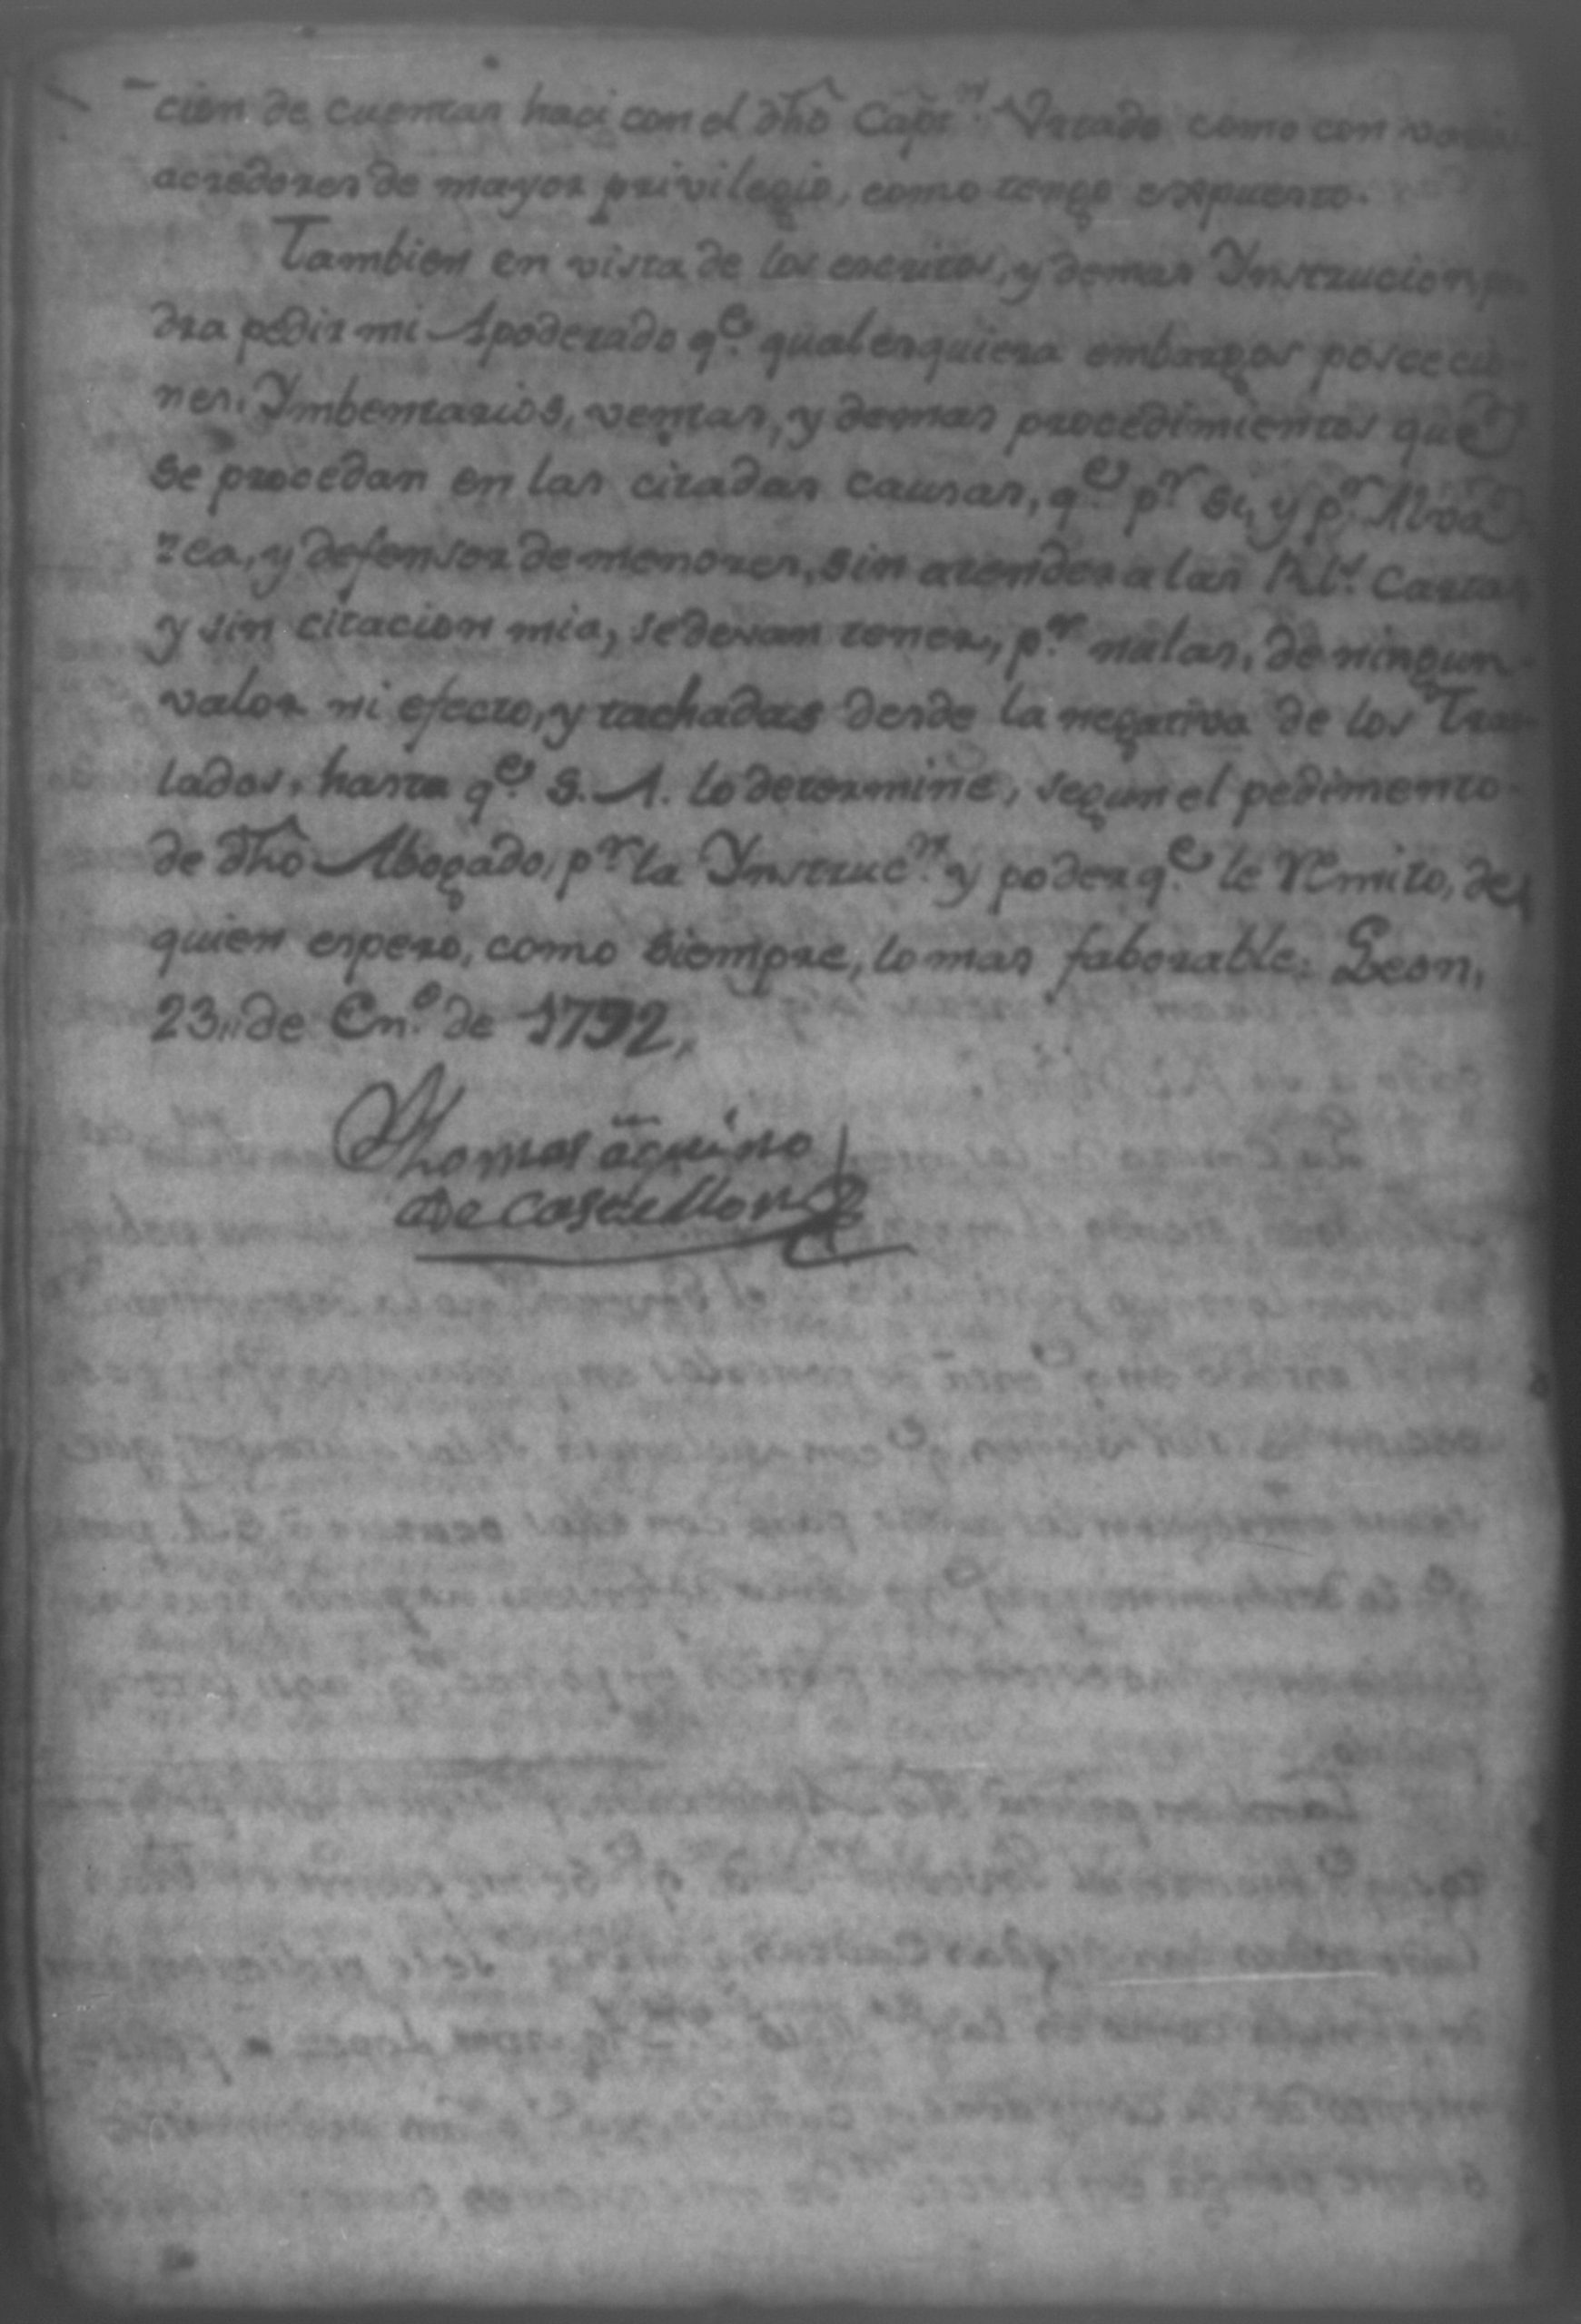 cion de cuentas haci con el dho Capn. Vrtado como con varios
acredores de mayor privilegio, como tengo expuesto.
Tambien en vista de los escritos, y demas Ynstrucion po
dra pedir mi Apoderado qe. qualesquiera embargos poscecio
nes, Ymbentarios, ventas, y demas procedimientos que
se procedan en las citadas causas, qe. pr. si, y pr. Alvas
zea, y defensor de menores, sin atender a las Rls. Cartas
y sin citacion mia, se devam tener, pr. nulas, de ningun
valor ni efecto, y tachadas desde la negativa de los Tras
lados, hasta qe. S. A. lo determine, segun el pedimento
de dho Abogado, pr. la Ynstrucn. y poder qe. le Remito, de
quien espero, como siempre, lo mas faborable. Leon,
23,, de Eno. de 1792,,
Thomas aquino
de Castellon